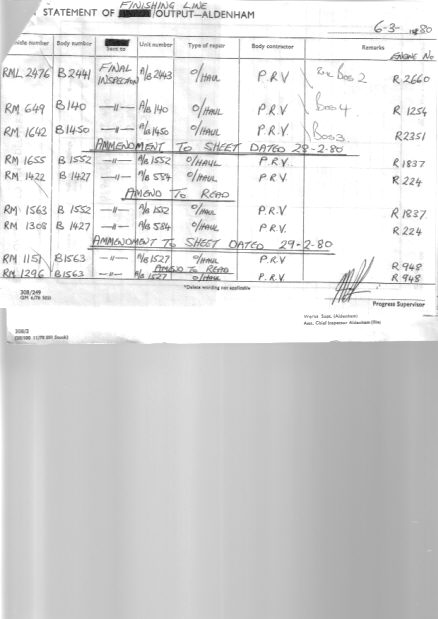 FINISHING LINE
STATEMENT OF /OUTPUT—ALDENHAM
6-3- 1980
hicle number Body number Sent to Unit number Type of repair Body contractor Remarks ENGINE No
RML 2476 B 2441 FINAL INSPECTION A/B 2443 O/HAUL P.R.V R 2660
RM 649 B140 —"— A/B 140 O/HAUL P.R.V Box 4 R 1254
RM 1642 B1450 —"— A/B 1450 O/HAUL P.R.V Box 3 R2351
AMMENDMENT TO SHEET DATED 28-2-80
RM 1655 B 1552 —"— A/B 1552 O/HAUL P.R.V. R 1837
RM 1422 B 1427 —"— A/B 584 O/HAUL P.R.V R 224
AMEND TO READ
RM 1563 B 1552 —"— A/B 1552 O/HAUL P.R.V R 1837
RM 1308 B 1427 —"— A/B 584 O/HAUL P.R.V. R 224
AMMENDMENT TO SHEET DATED 29-2-80
RM 1151 B1563 —"— A/B 1527 O/HAUL P.R.V R 948
AMEND TO READ
RM 1296 B1563 —"— A/B 1527 O/HAUL P.R.V. R 948
308/249
GM 4/78 50)
*Delete wording not applicable
Progress Supervisor
Works Supt. (Aldenham)
Asst. Chief Inspector Aldenham (file)
308/2